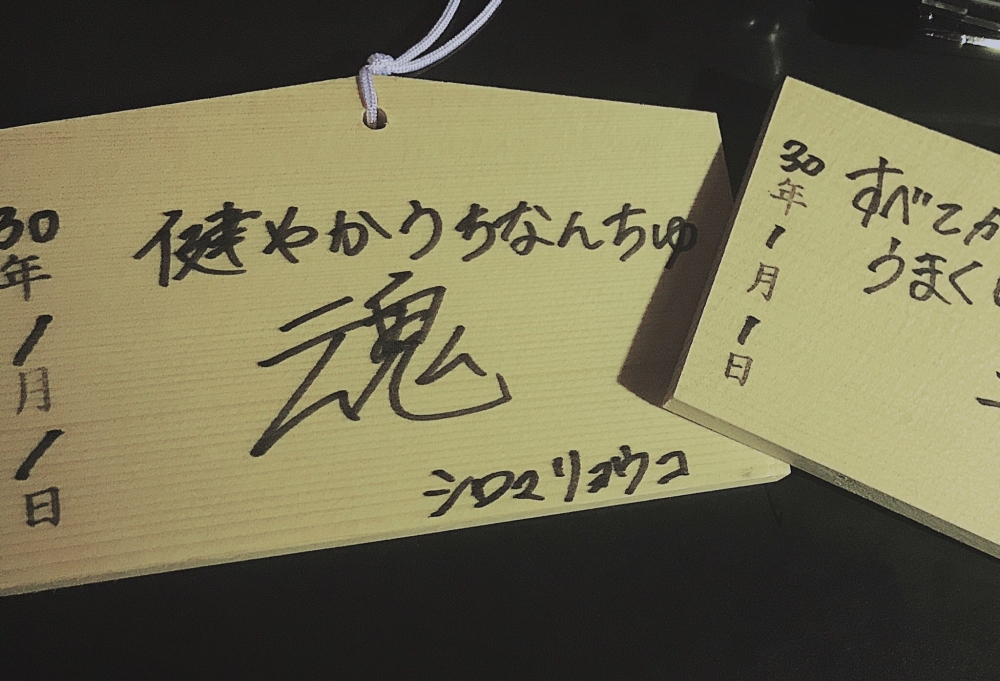 30年1月1日
健やかうちなんちゅ
魂
シロマリョウコ
30年1月1日
すべてが
うまく